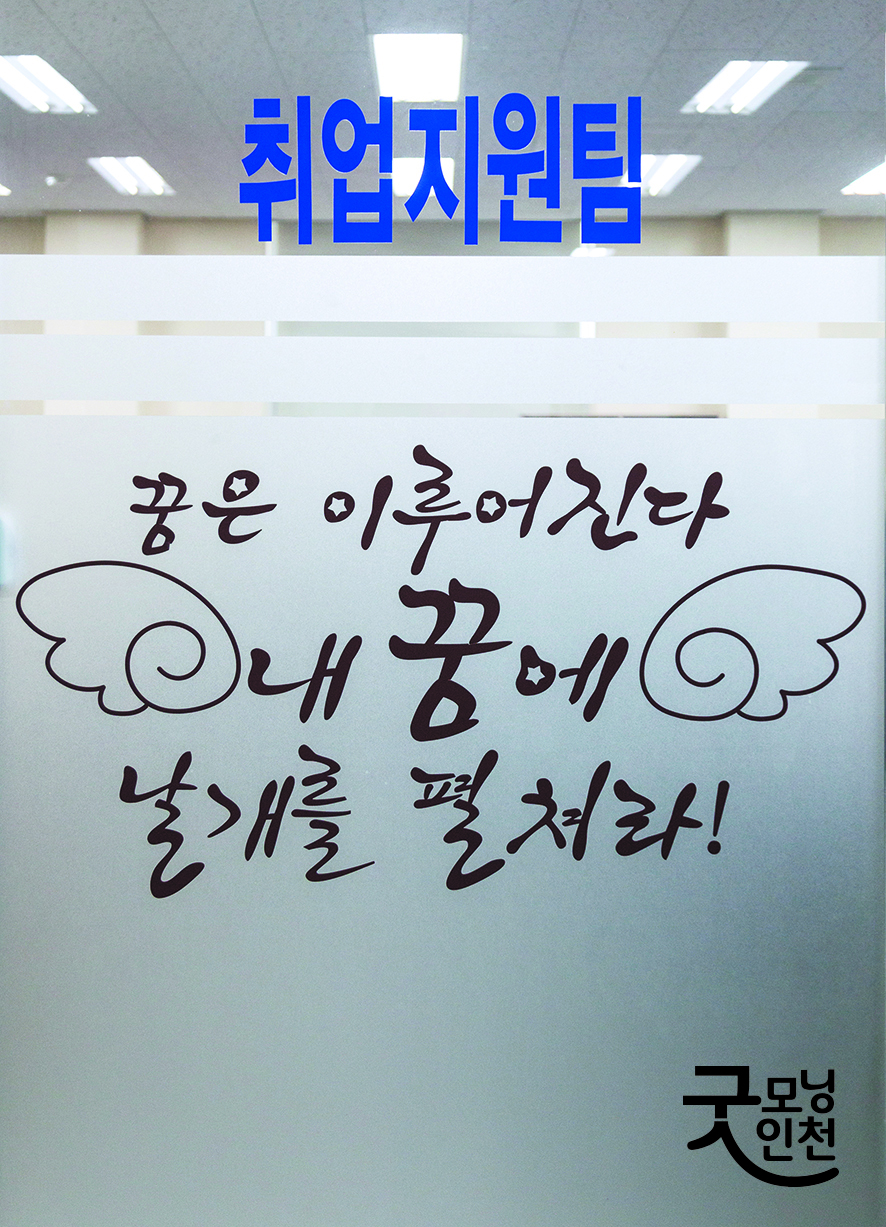 취업지원팀
꿈은 이루어진다
내 꿈에
날개를 펼쳐라!
굿모닝
인천